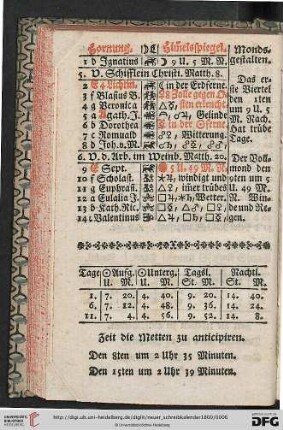 Hornung. Himelsspiegel. Monds-
1 d Ignatius 9 U. 5 M. N. gestalten.
5. V. Schifflein Christi. Matth. 8.
Das er-
2 E 4 Lichtm. in der Erdferne ste Viertel
3 f Blasius B. 8 Zolle gegen den 1ten
4 g Veronica sten erleucht um 9 U. 5
5 a Agath. J. Gelind M. Nach.
6 b Dorothea in der Osterne Hat trübe
7 c Romuald Witterung Tage.
8 d Joh. v. M.
6. V. d. Arb. im Weinb. Matth. 20. Der Voll-
9 E Sept. 5 U. 49 M. N. mond den
10 f Scholast. windigt und 9ten um 5
11 g Euphrasi. imer trübes U. 49 M.
12 a Eulalia J. Wetter. N. Win-
13 b Kath. Ric. de und Re-
14 c Valentinus gen.
Tage ☉Aufg. ☉Unterg. Tagsl. Nachtl.
U. M. U. M. St. M. St. M.
1. 7. 20. 4. 40. 9. 20. 14. 40.
6. 7. 12. 4. 48. 9. 36. 14. 24.
11. 7. 4. 4. 56. 9. 52. 14. 8.
Zeit die Metten zu anticipiren.
Den 8ten um 2 Uhr 35 Minuten.
Den 15ten um 2 Uhr 39 Minuten.
UNIVERSITÄTS-
BIBLIOTHEK
HEIDELBERG
© Universitätsbibliothek Heidelberg
gefördert durch die
DFG